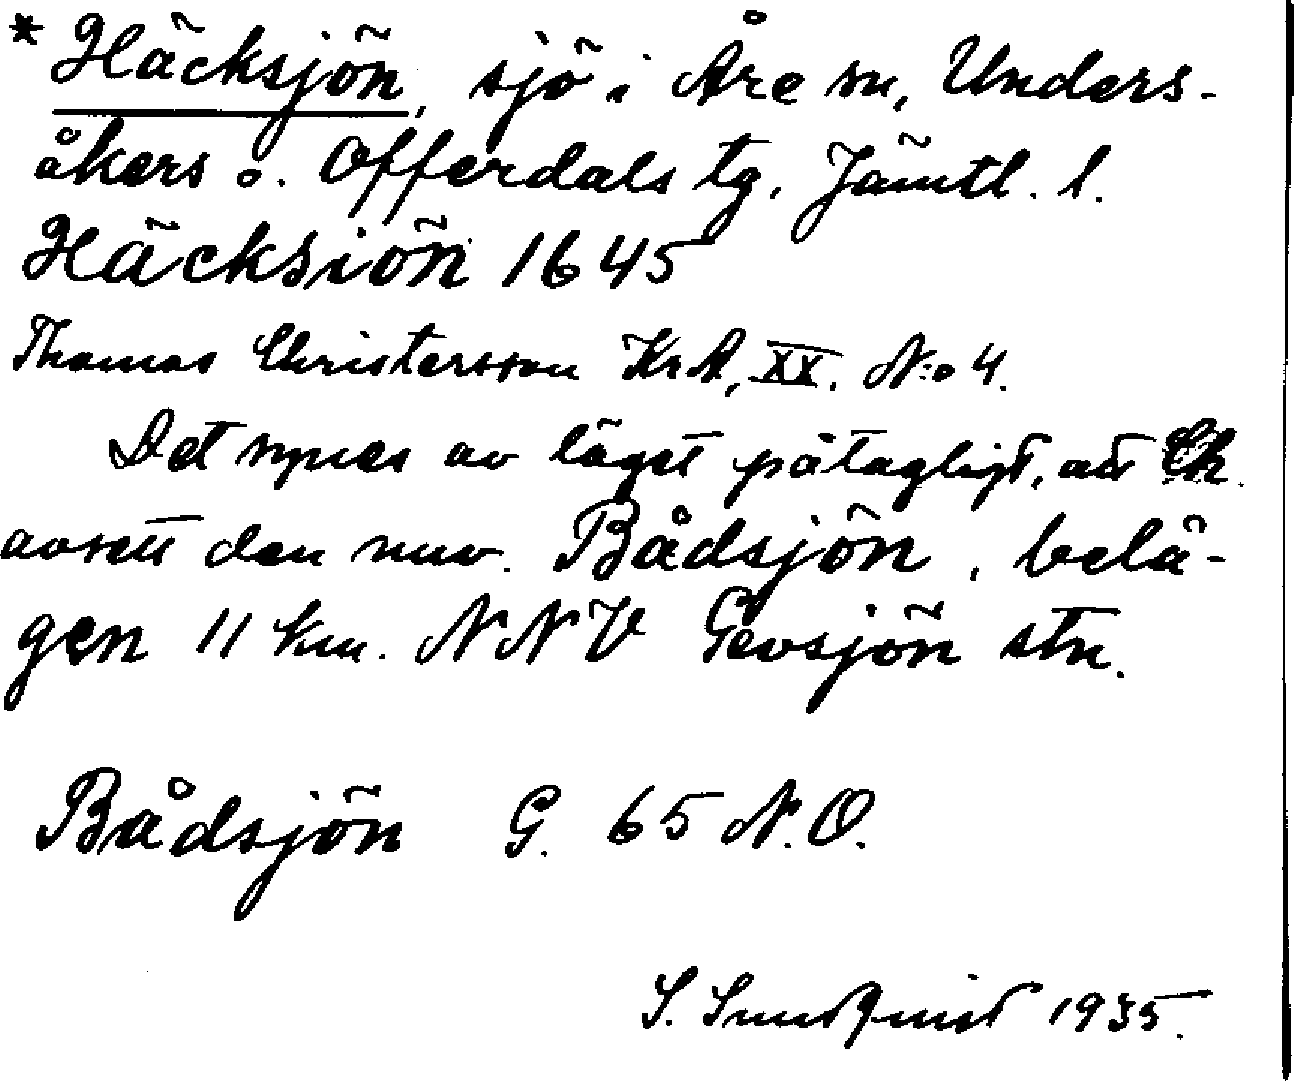 * Häcksjön, sjö i Åre sn, Unders-
åkers o. Offerdals tg, Jämtl. l.
Häcksiön 1645
Thomas Christersson KrA, XX. N:o 4.
Det synes av läget påtagligt, att Ch.
avsett den nuv. Bådsjön, belä-
gen 11 km. NNV Gevsjön stn.
Bådsjön G. 65 N.O.
S. Sundquist 1935.